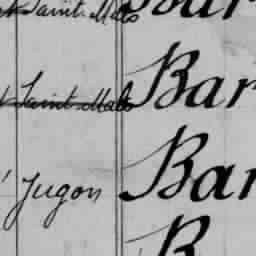 Saint-Malo Bar
Saint-Malo Bar
Jugon Bar
B